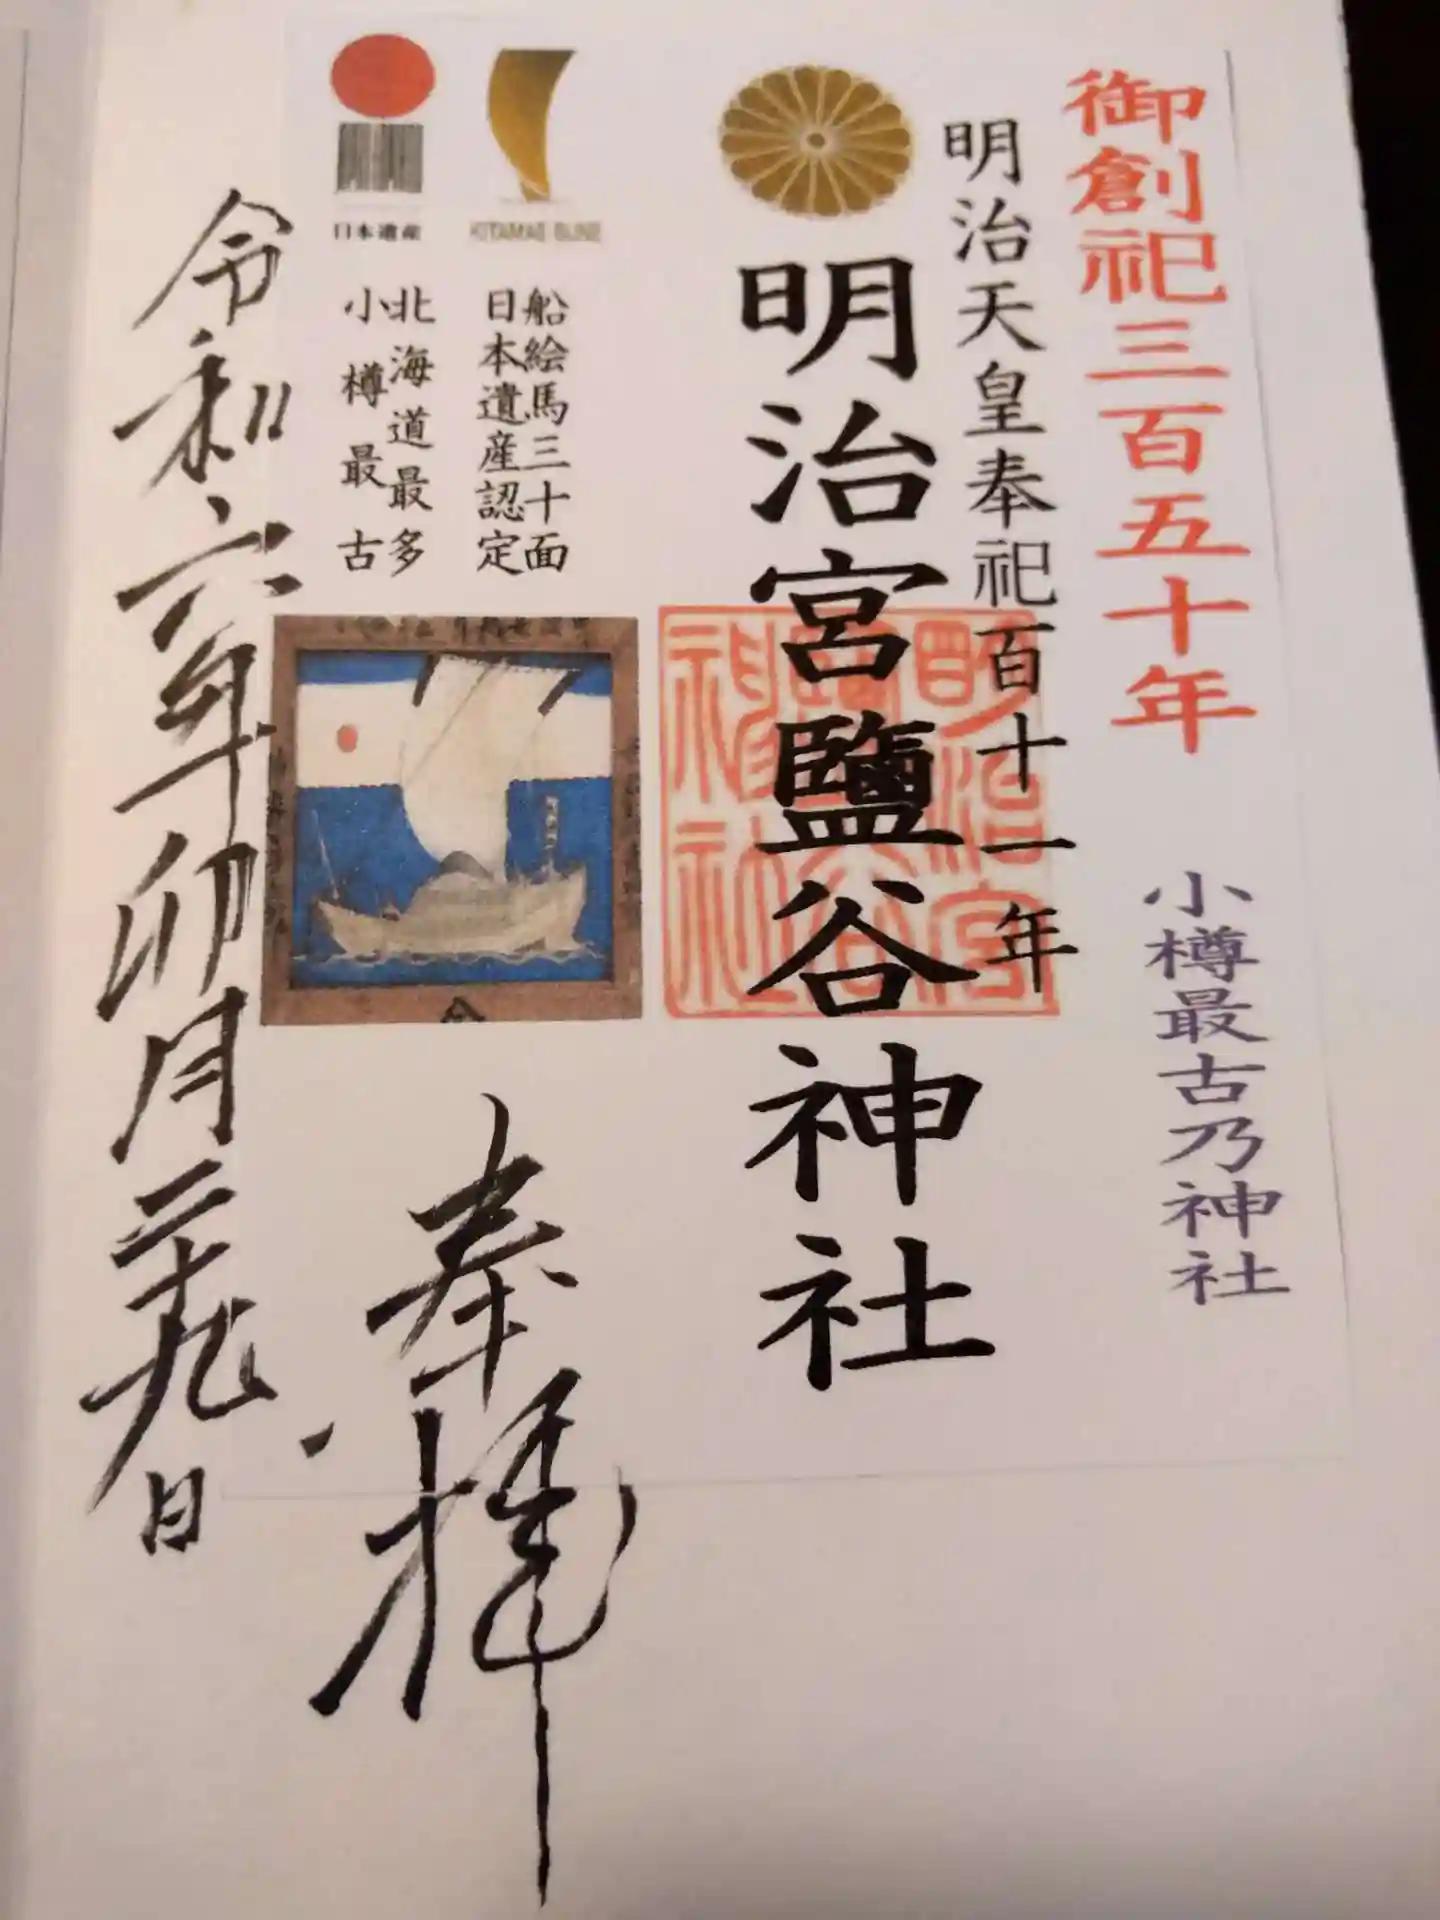 御創祀三百五十年
小樽最古乃神社
明治天皇奉祀百十一年
明治宮鹽谷神社
明治宮
鹽谷
神社
KITAMAE BUNE
船絵馬三十面
日本遺産認定
日本遺産
北海道最多
小樽最古
奉拝
令和六年卯月二十九日